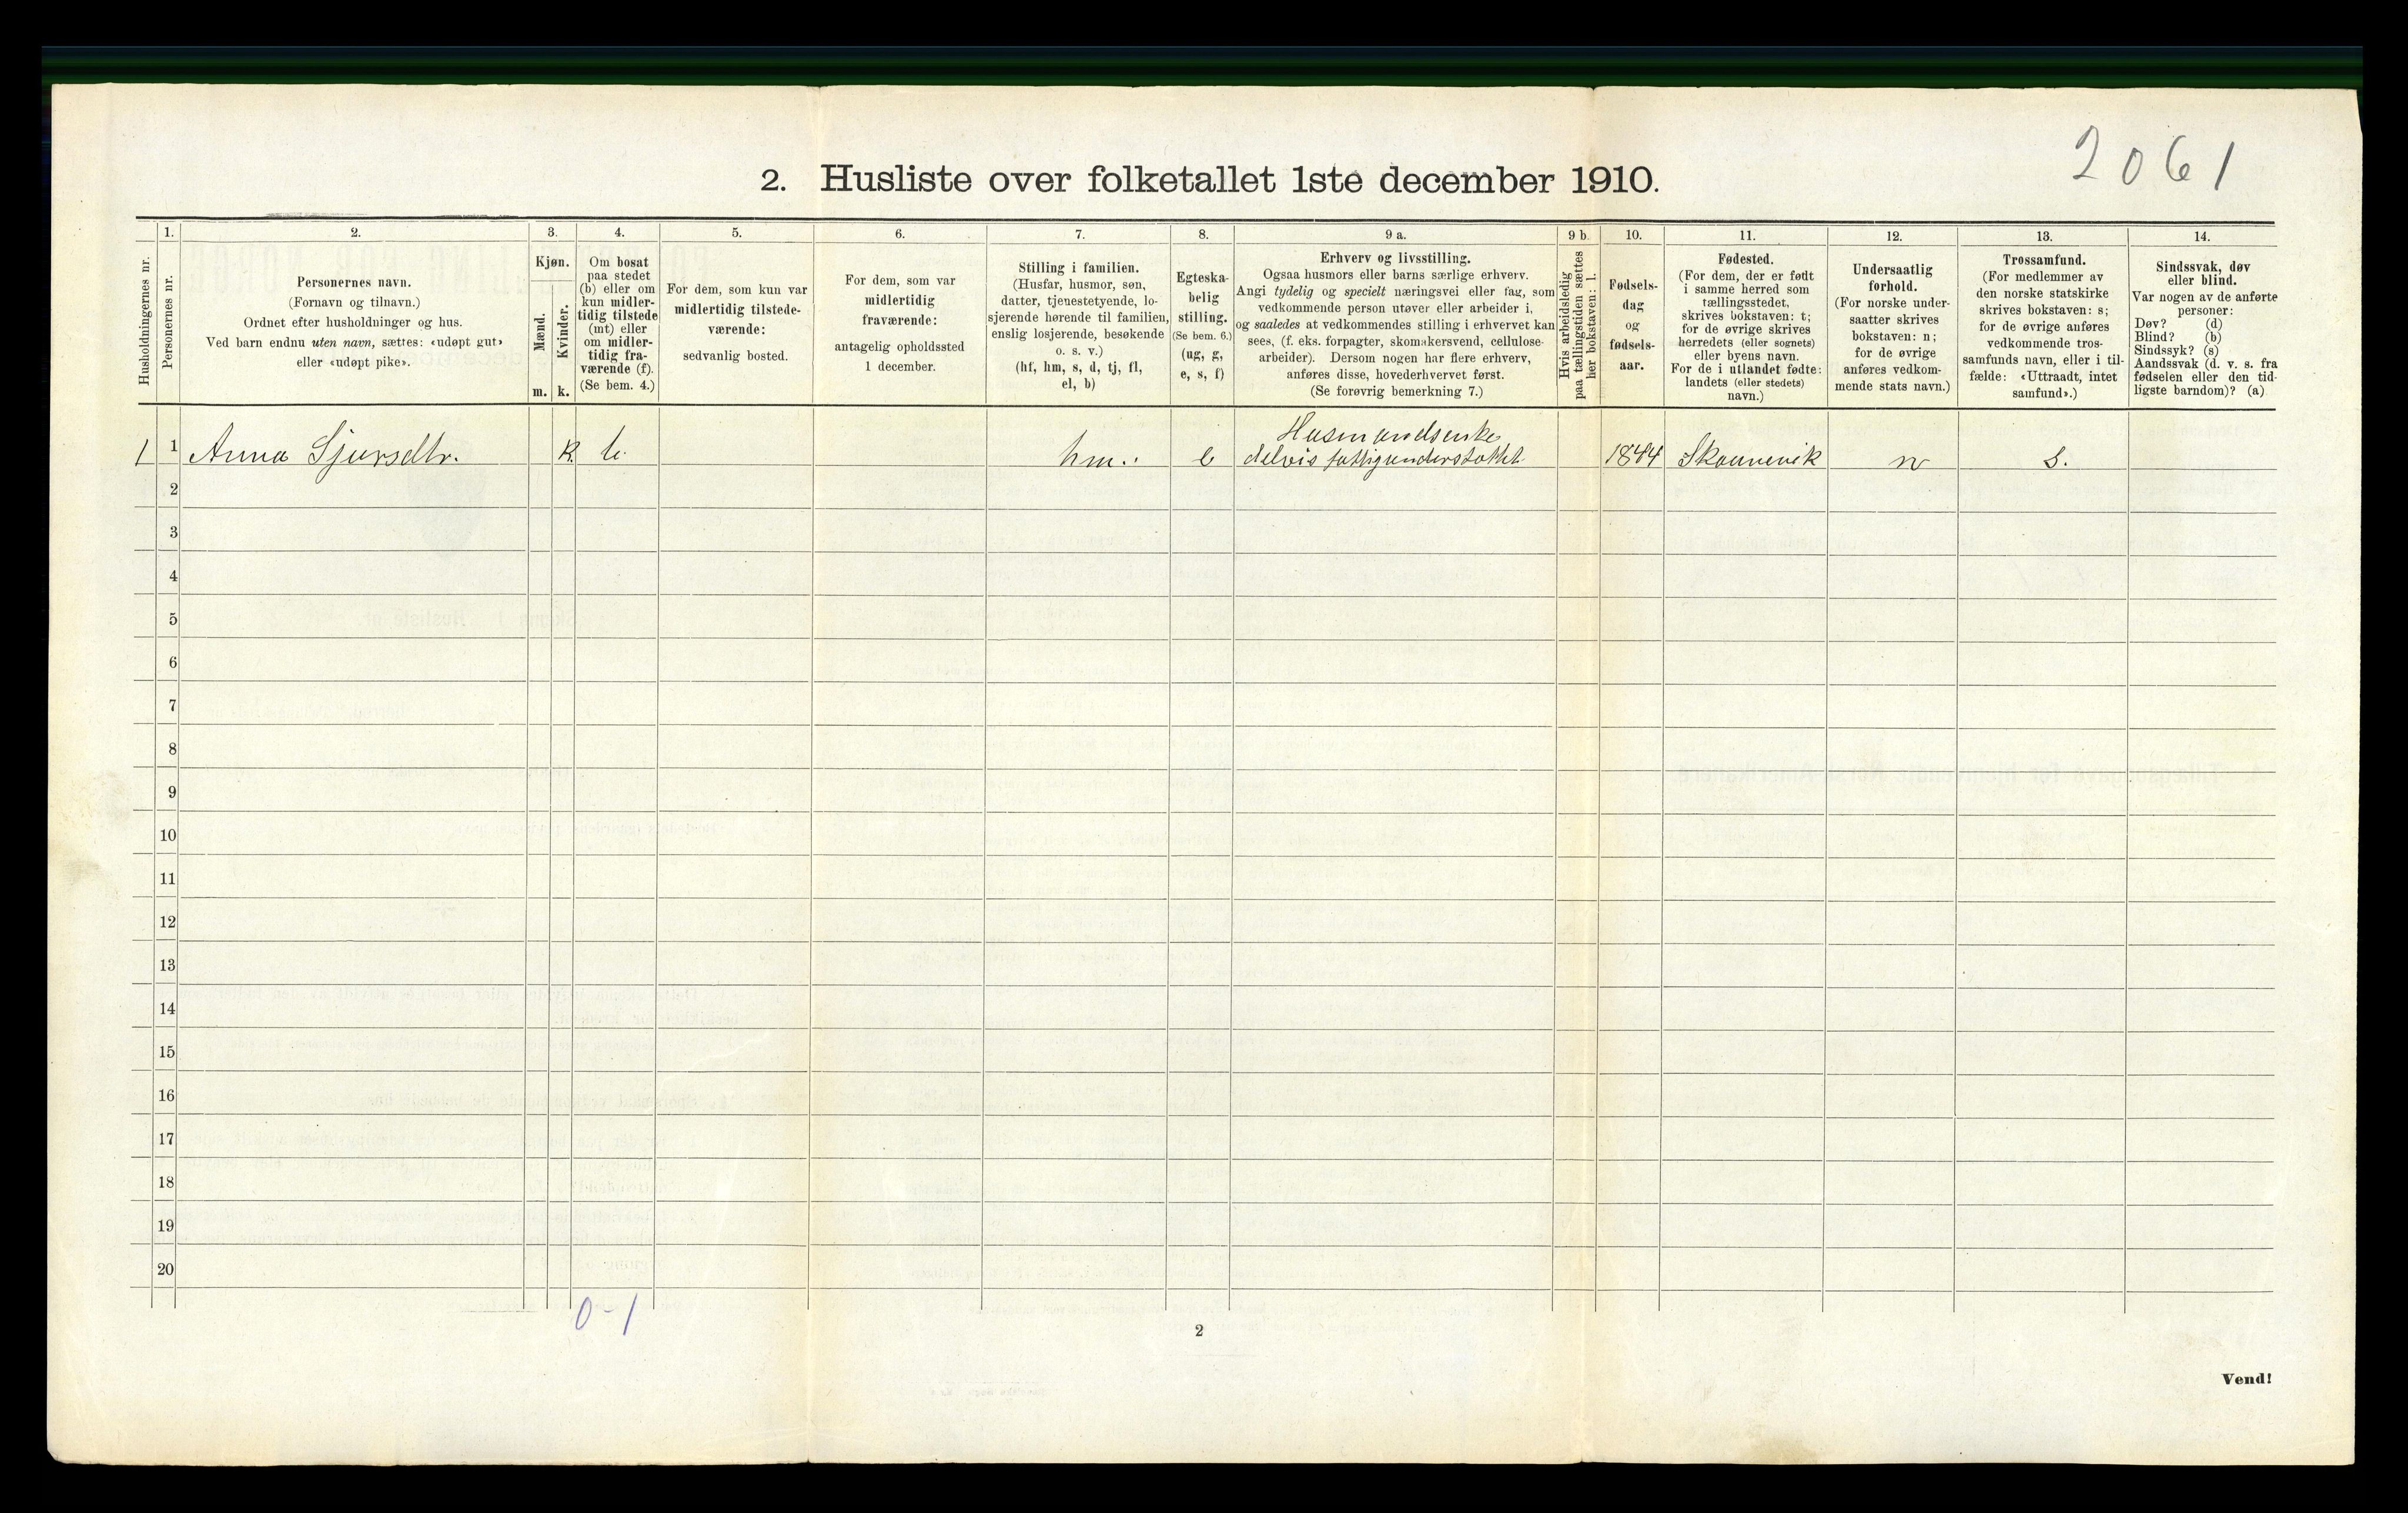 2061
2. Husliste over folketallet 1ste december 1910.
Husholdningernes nr.
1.
Personernes nr.
2.
Personernes navn.
(Fornavn og tilnavn.)
Ordnet efter husholdninger og hus.
Ved barn endnu uten navn, sættes: «udøpt gut»
eller «udøpt pike».
3.
Kjøn.
Mænd.
Kvinder.
m. k.
4.
Om bosat
paa stedet
(b) eller om
kun midler-
tidig tilstede
(mt) eller
om midler-
tidig fra-
værende (f).
(Se bem. 4.)
5.
For dem, som kun var
midlertidig tilstede-
værende:
sedvanlig bosted.
6.
For dem, som var
midlertidig
fraværende:
antagelig opholdssted
1 december.
7.
Stilling i familien.
(Husfar, husmor, søn,
datter, tjenestetyende, lo-
sjerende hørende til familien,
enslig losjerende, besøkende
o. s. v.)
(hf, hm, s, d, tj, fl,
el, b)
8.
Egteska-
belig
stilling.
(Se bem. 6.)
(ug, g,
e, s, f)
9 a.
Erhverv og livsstilling.
Ogsaa husmors eller barns særlige erhverv.
Angi tydelig og specielt næringsvei eller fag, som
vedkommende person utøver eller arbeider i,
og saaledes at vedkommendes stilling i erhvervet kan
sees, (f. eks. forpagter, skomakersvend, cellulose-
arbeider). Dersom nogen har flere erhverv,
anføres disse, hovederhvervet først.
(Se forøvrig bemerkning 7.)
9 b.
Hvis arbeidsledig
paa tællingstiden sættes
her bokstaven: l.
10.
Fødsels-
dag
og
fødsels-
aar.
11.
Fødested.
(For dem, der er født
i samme herred som
tællingsstedet,
skrives bokstaven: t;
for de øvrige skrives
herredets (eller sognets)
eller byens navn.
For de i utlandet fødte:
landets (eller stedets)
navn.)
12.
Undersaatlig
forhold.
(For norske under-
saatter skrives
bokstaven: n;
for de øvrige
anføres vedkom-
mende stats navn.)
13.
Trossamfund.
(For medlemmer av
den norske statskirke
skrives bokstaven: s;
for de øvrige anføres
vedkommende tros-
samfunds navn, eller i til-
fælde: «Uttraadt, intet
samfund».)
14.
Sindssvak, døv
eller blind.
Var nogen av de anførte
personer:
Døv? (d)
Blind? (b)
Sindssyk? (s)
Aandssvak (d. v. s. fra
fødselen eller den tid-
ligste barndom)? (a)
Husmandsenke
1 1 Anna Sjursdtr. k. b. hm. e delvis fattigunderstøttet 1844 Skaanevik n s.
2
3
4
5
6
7
8
9
10
11
12
13
14
15
16
17
18
19
20
0-1
2
Vend!